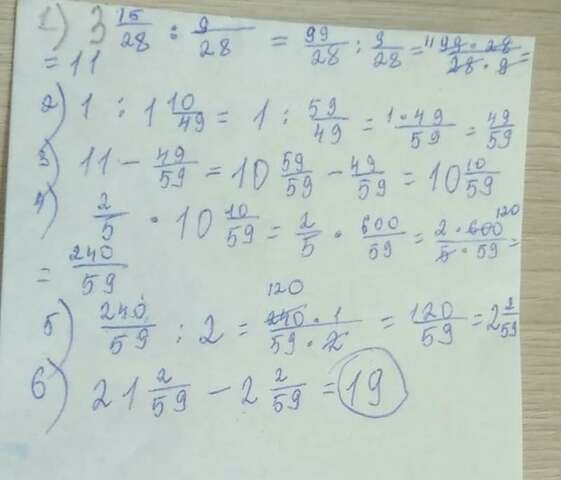 1) 3 15/28 : 9/28 = 99/28 : 9/28 = 11 99 · 28 / 28 · 9 =
= 11
2) 1 : 1 10/49 = 1 : 59/49 = 1 · 49 / 59 = 49/59
3) 11 - 49/59 = 10 59/59 - 49/59 = 10 10/59
4) 2/5 · 10 10/59 = 2/5 · 600/59 = 2 · 600 120 / 5 · 59 =
= 240/59
5) 240/59 : 2 = 120 240 · 1 / 59 · 2 = 120/59 = 2 2/59
6) 21 2/59 - 2 2/59 = 19